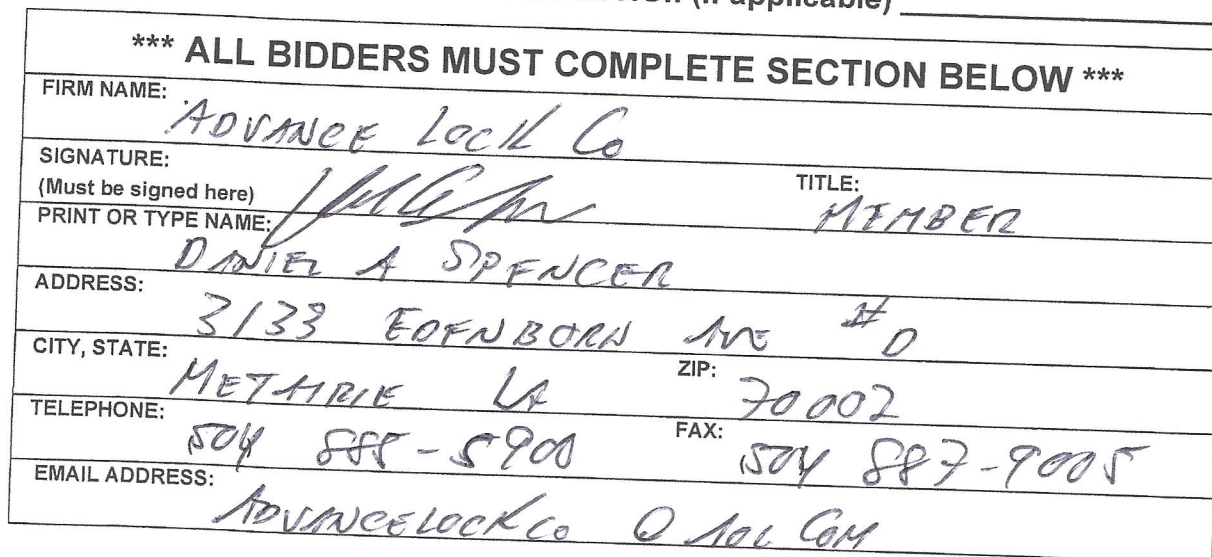 (if applicable)
*** ALL BIDDERS MUST COMPLETE SECTION BELOW ***
FIRM NAME:
ADVANCE LOCK Co
SIGNATURE:
(Must be signed here)
TITLE:
MEMBER
PRINT OR TYPE NAME:
DANIEL A SPENCER
ADDRESS:
3133 EDENBORN AVE #D
CITY, STATE:
METAIRIE LA
ZIP:
70002
TELEPHONE:
504 885-5900
FAX:
504 887-9005
EMAIL ADDRESS:
ADVANCELOCKCo @ AOL COM